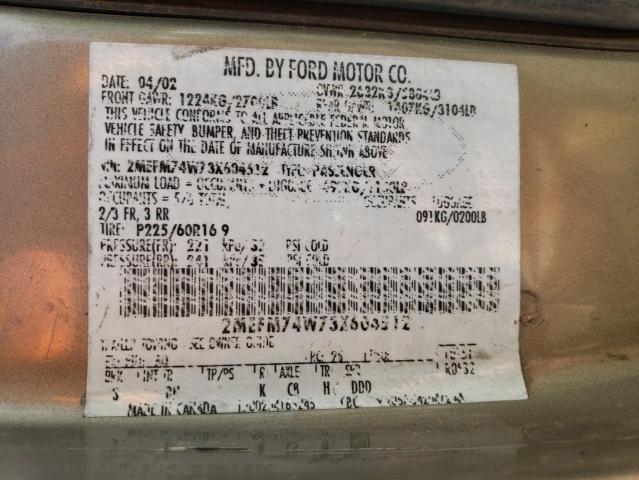 MFD. BY FORD MOTOR CO.
DATE: 04/02 GVWR:
FRONT GAWR: 1224KG/2700LB REAR GAWR: 1407KG/3104LB
THIS VEHICLE CONFORMS TO ALL APPLICABLE FEDERAL MOTOR
VEHICLE SAFETY, BUMPER, AND THEFT PREVENTION STANDARDS
IN EFFECT ON THE DATE OF MANUFACTURE SHOWN ABOVE
VIN: 2MEFM74W73X604512 TYPE: PASSENGER
MAXIMUM LOAD = OCCUPANTS + LUGGAGE
OCCUPANTS = TOTAL OCCUPANTS LUGGAGE
2/3 FR, 3 RR 091KG/0200LB
TIRE: P225/60R16 9
PRESSURE(FR): 221 kPa/ PSI COLD
PRESSURE(RR): 241 kPa/35 PSI COLD
2MEFM74W73X604512
TRAILER TOWING - SEE OWNER GUIDE
BRK INT TR TP/PS R AXLE TR SPR
S K C8 H DDD
MADE IN CANADA